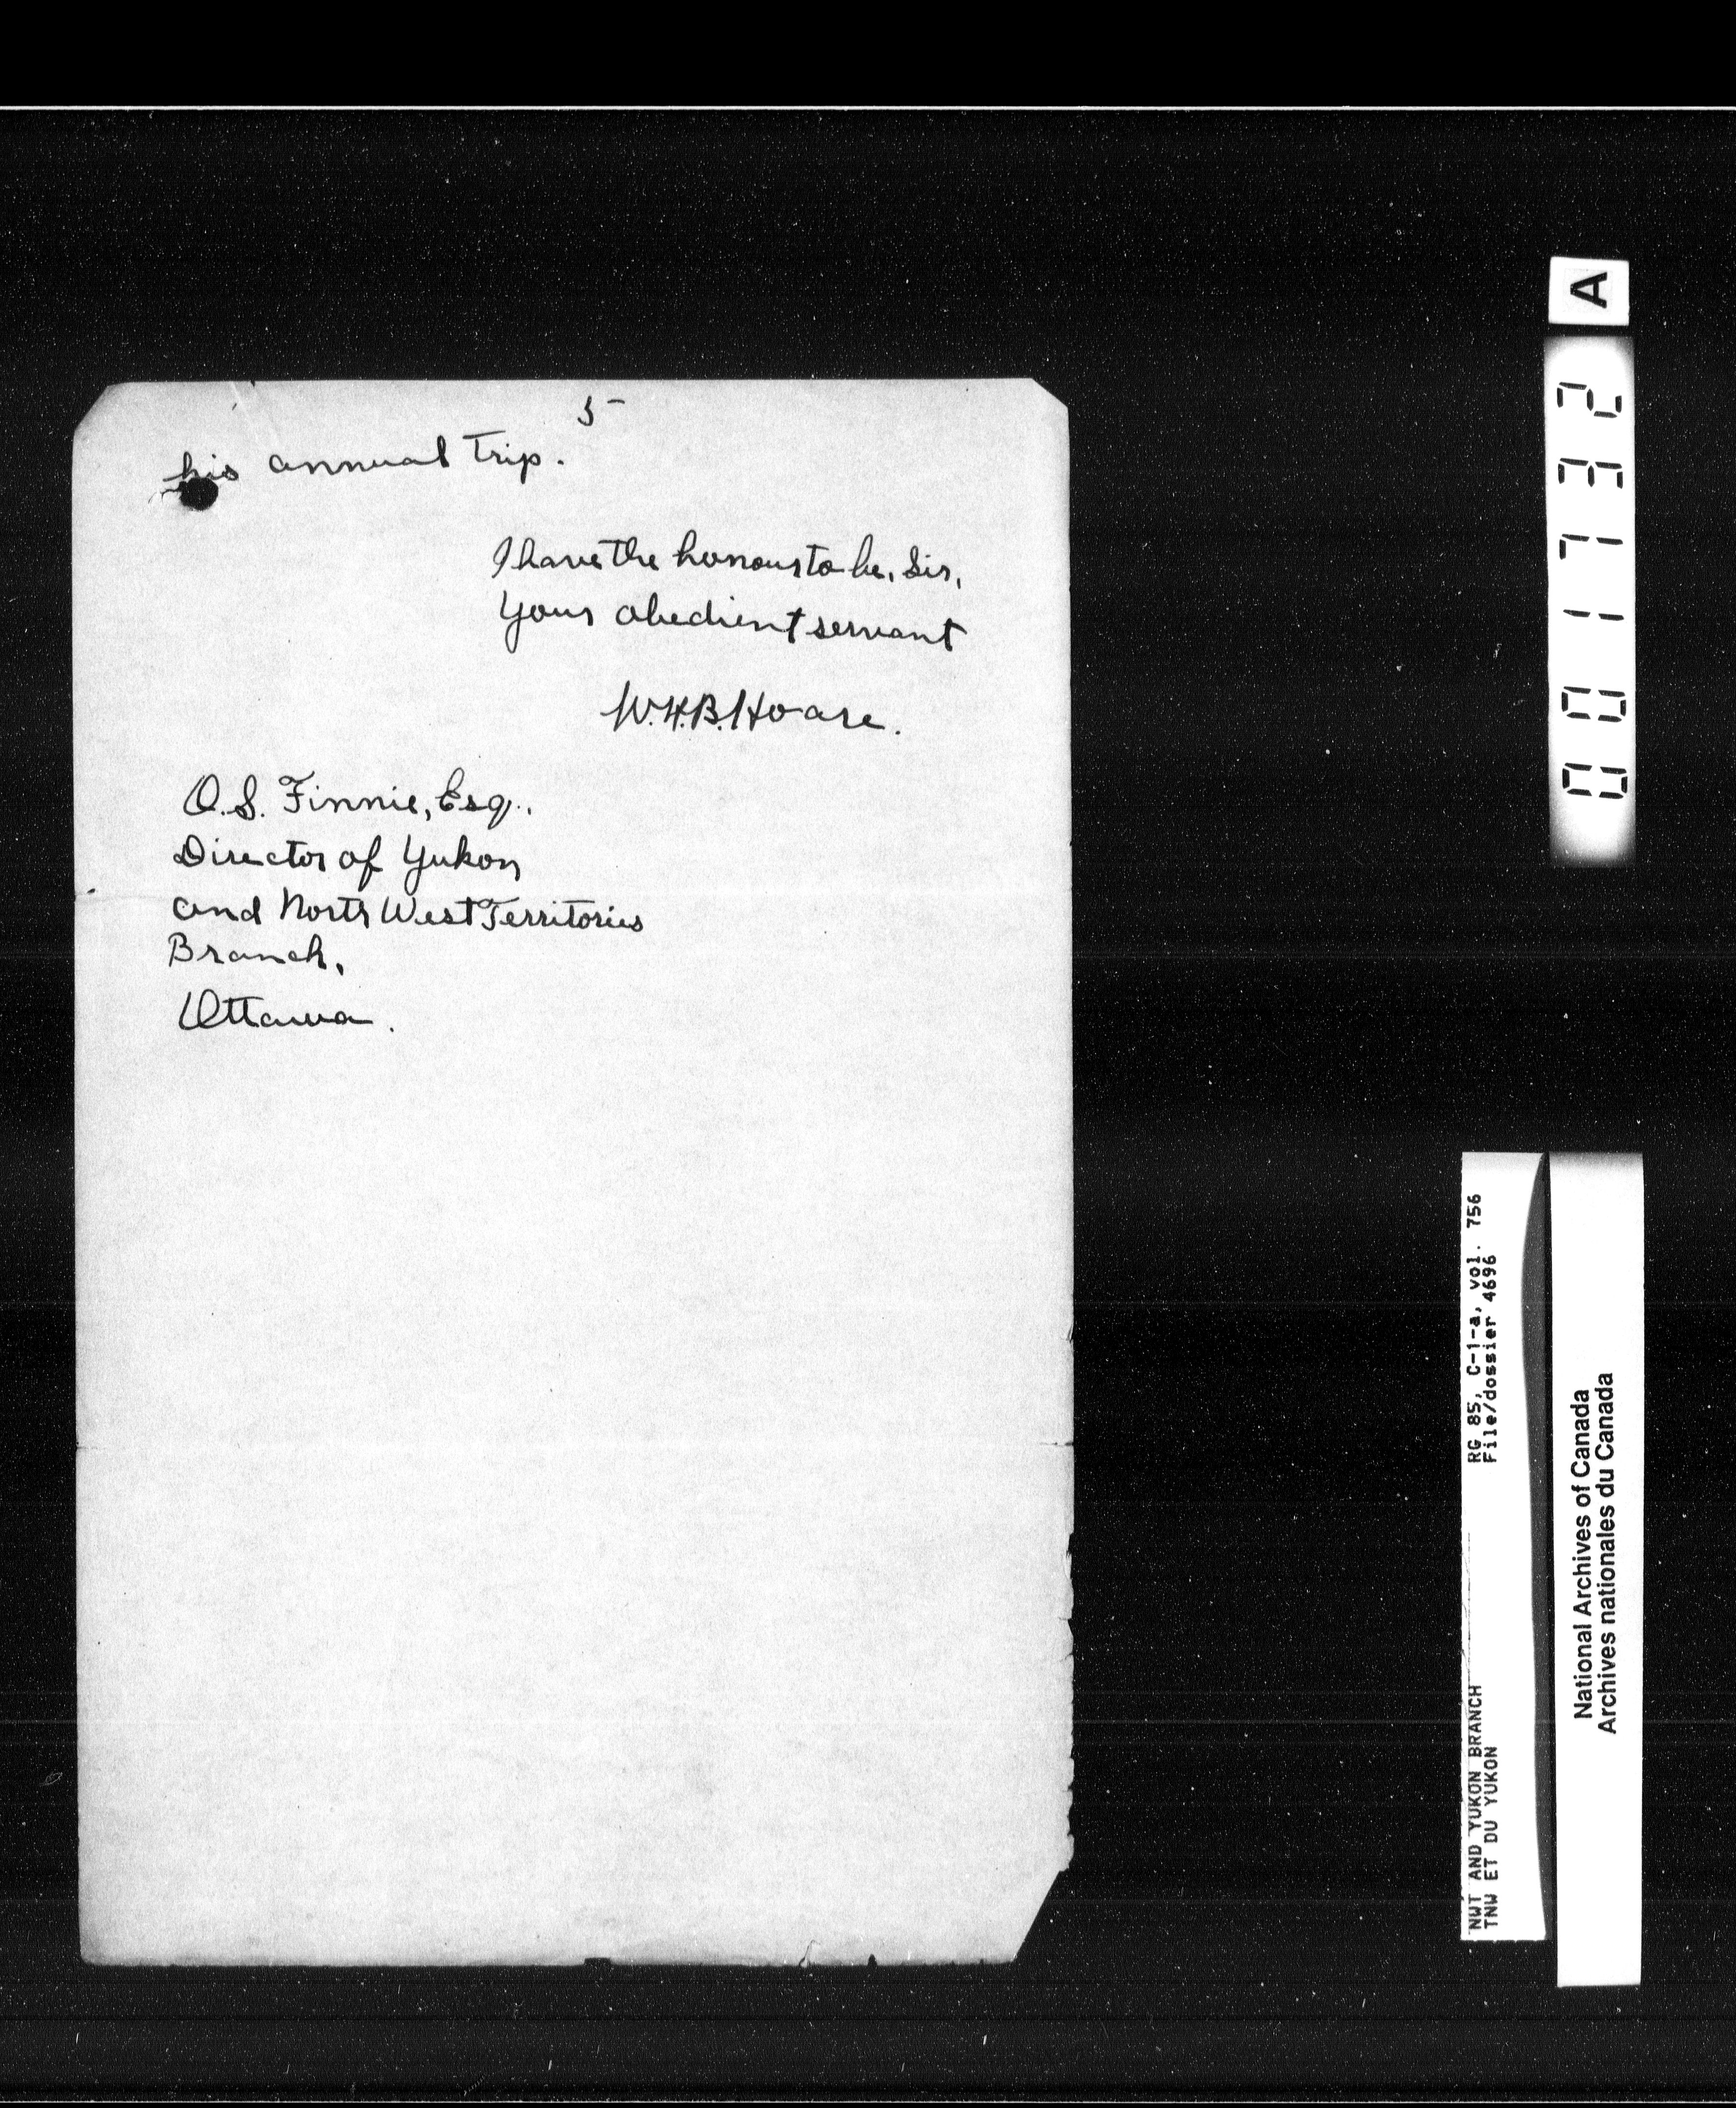 5
his annual trip.
I have the honour to be, Sir,
Your obedient servant
W.H.B. Hoare.
O.S. Finnie, Esq.,
Director of Yukon
and North West Territories
Branch,
Ottawa.
A
001732
RG 85, C-1-a, vol. 756
File/dossier 4696
NWT AND YUKON BRANCH
TNW ET DU YUKON
National Archives of Canada
Archives nationales du Canada